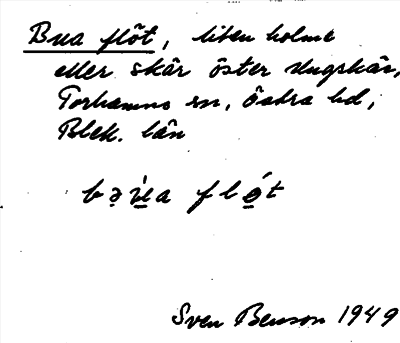 Bua flöt, liten holme
eller skär öster Ungskär,
Torhamns sn, Östra hd,
Blek. län
bəu̯a fløt
Sven Benson 1949